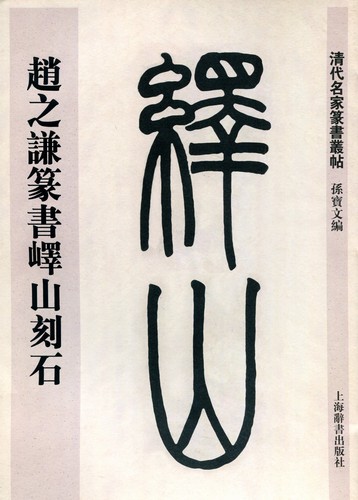 清代名家篆書叢帖
孫寶文編
繹山
趙之謙篆書嶧山刻石
上海辭書出版社